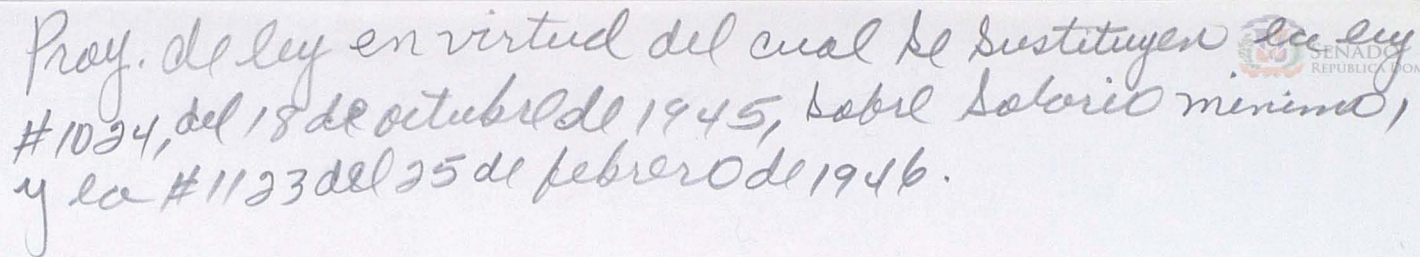 Proy. de ley en virtud del cual se sustituyen la ley
#1024, del 18 de octubre de 1945, sobre salario minimo,
y la #1123 del 25 de febrero de 1946.
SENADO
REPÚBLICA DOM